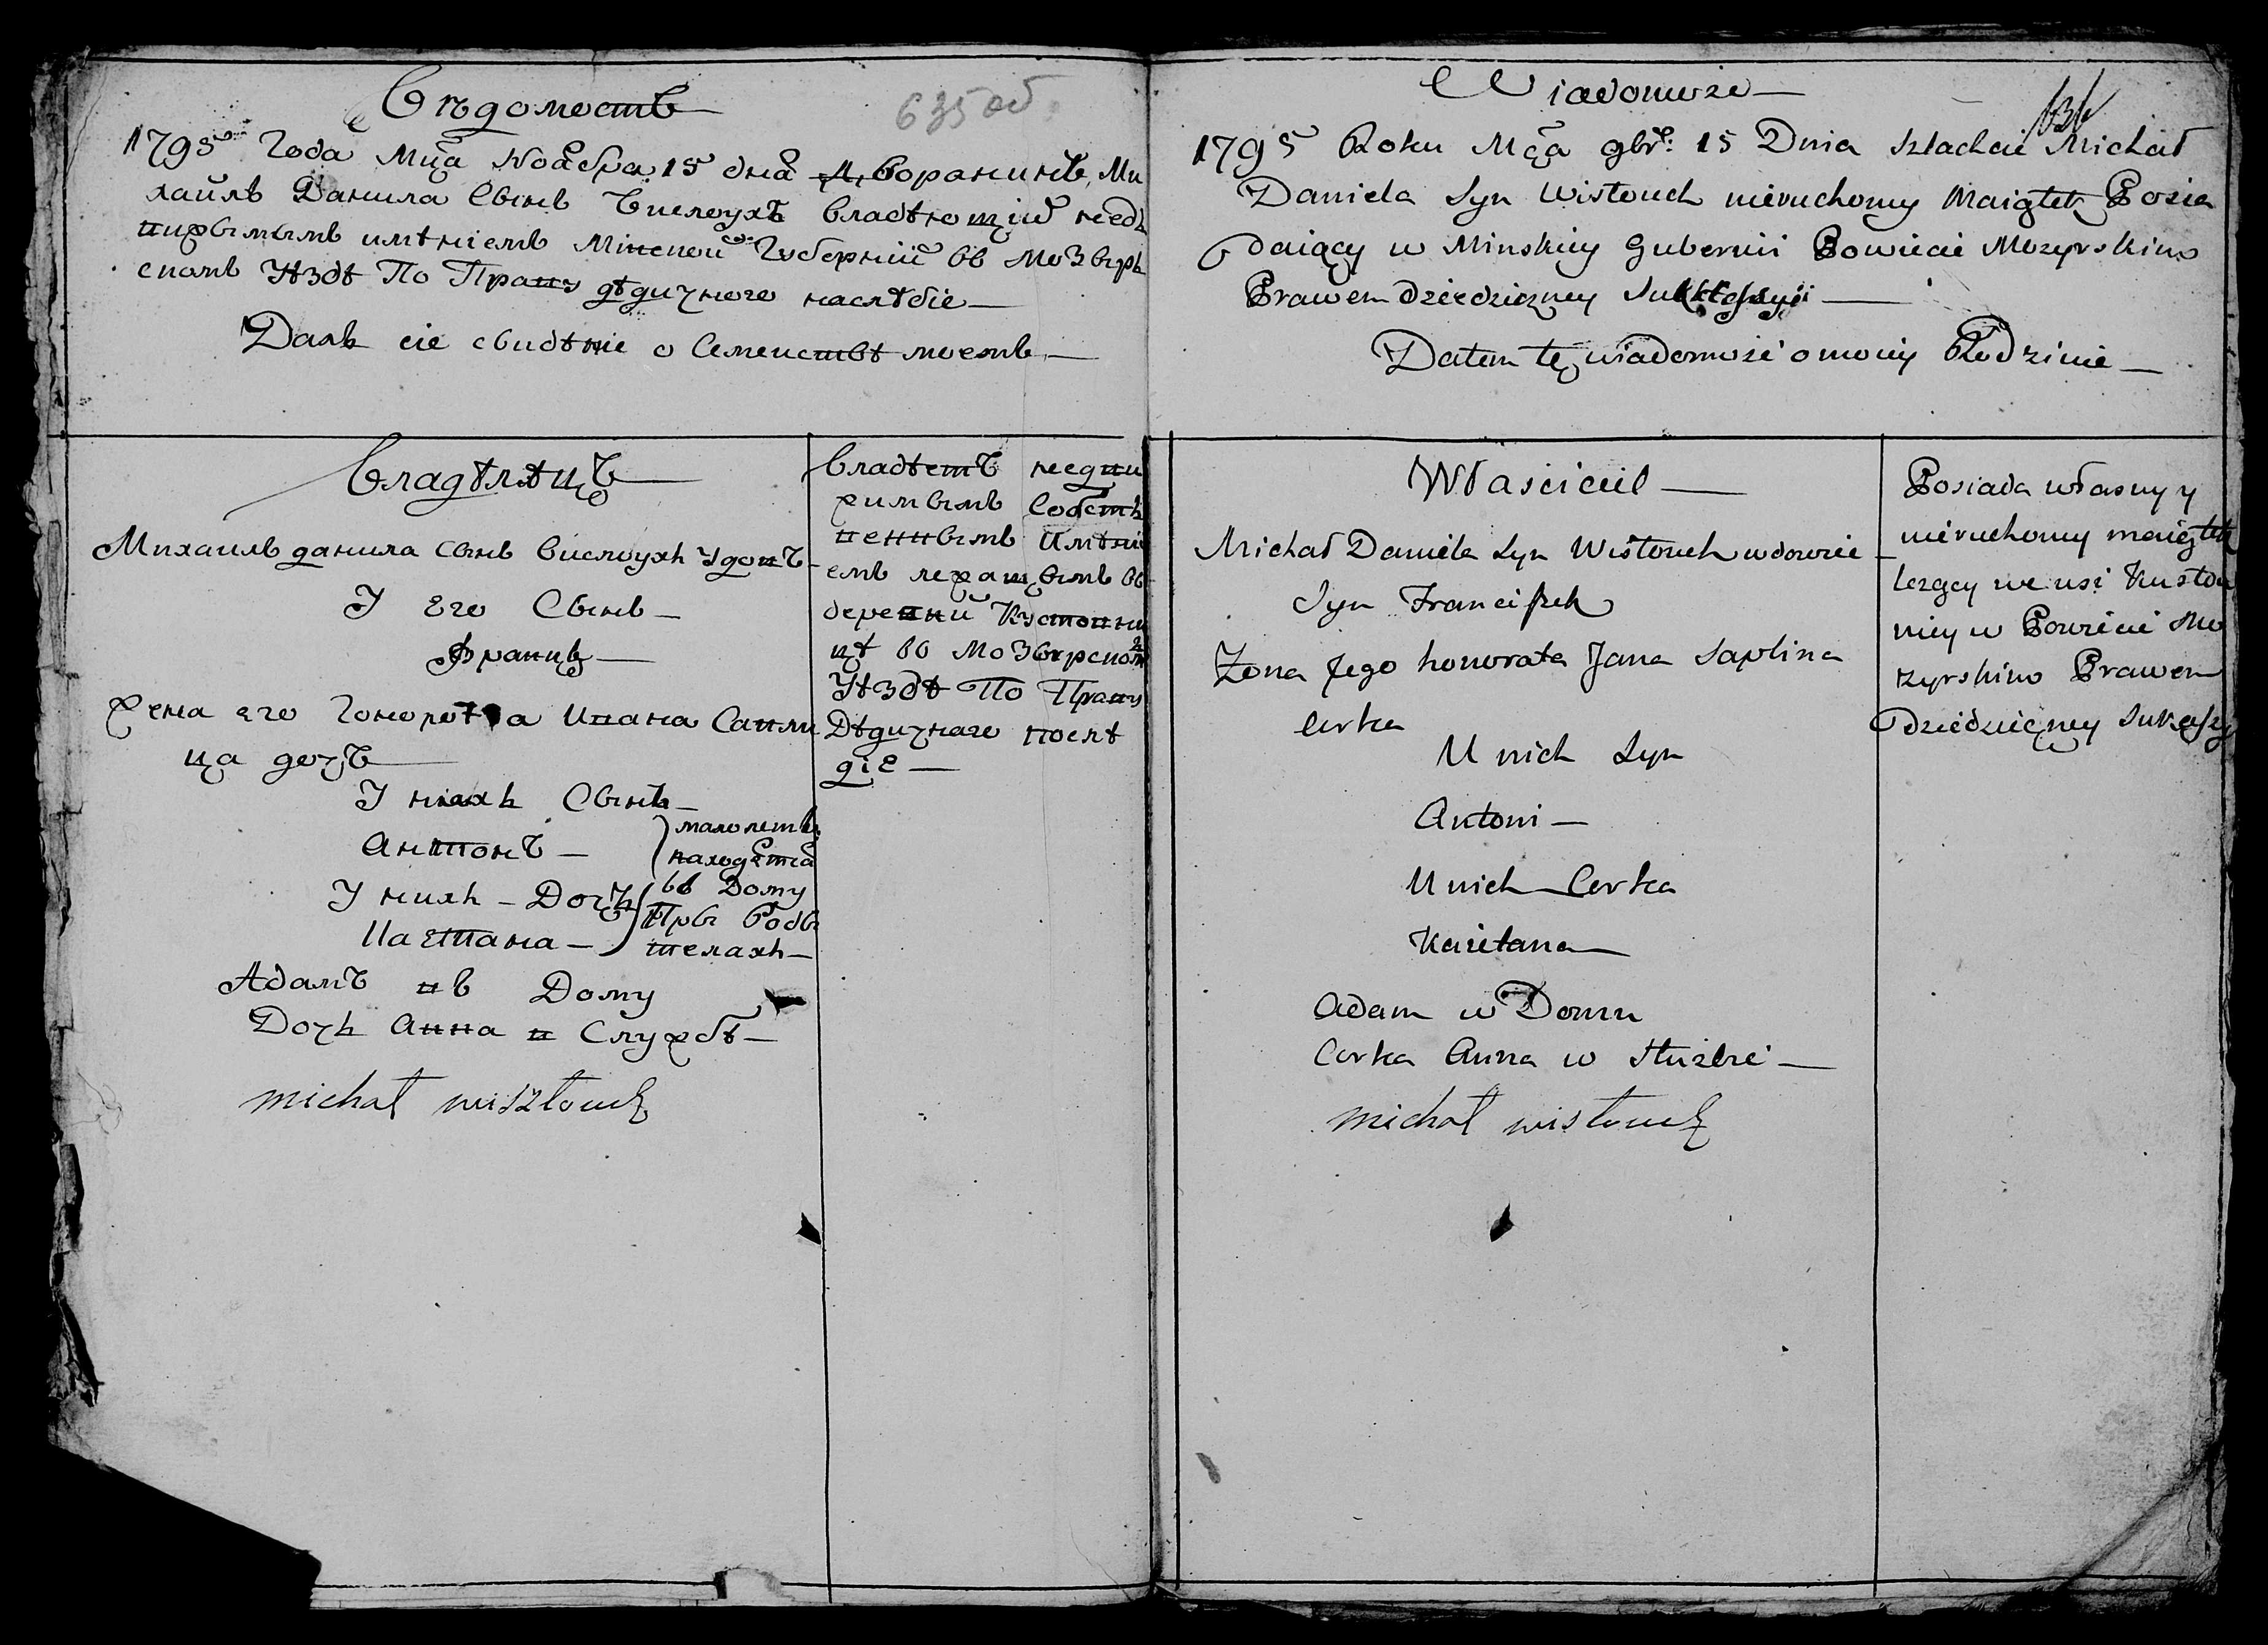 Вѣдомость
635 об
1795 Года Мца Ноября 15 дня Дворянинъ Ми
хаилъ Данила Сынъ Вислоухъ владѣющій недв
ижымымъ имѣніемъ Мінской Губерніи въ Мозырс
комъ Уѣздѣ По Праву дѣдичного наслѣдіе
Далъ сіе свидѣніе о Семействѣ моемъ
Владѣлѣцъ
Михаилъ данила сынъ вислоухъ удовъ
У Его Сынъ
Францъ
Жена его Гонората Ивана Сапли
ца дочъ
У ніахъ Сынъ
Антонъ
малолетв
находятся
въ Дому
Пры Роды
телахъ
У нихъ Дочъ
Каэтана
Адамъ въ Дому
Дочъ Анна в Службѣ
michał wiszłouch
владѣетъ недви
жимымъ Собств
веннымъ Имѣні
емъ лежащымъ въ
деревни Кустовни
цѣ во Мозырском
Уѣздѣ По Праву
Дѣдичнаго послѣ
діе
Wiadomość
136
1795 Roku Mca 9br: 15 Dnia szlachcic Michał
Daniela Syn Wisłouch nieruchomy Maiątek Posia
daiący w Minskiey Gubernii Powiecie Mozyrskim
Prawem dziedziczney Sukcessyi
Datem tę wiadomość o moiey Rodzinie
Właściciel
Michał Daniela Syn Wisłouch wdowiec
Syn Franciszek
Zona Jego honorata Jana Saplica
Corka
U nich Syn
Antoni
U nich Corka
Kaietana
Adam w Domu
Corka Anna w służbie
michał wisłouch
Posiada własny y
nieruchomy maiątek
lezący we wsi Kustow
nicy w Powiecie Mo
zyrskim Prawem
dziedziczney Sukcessy